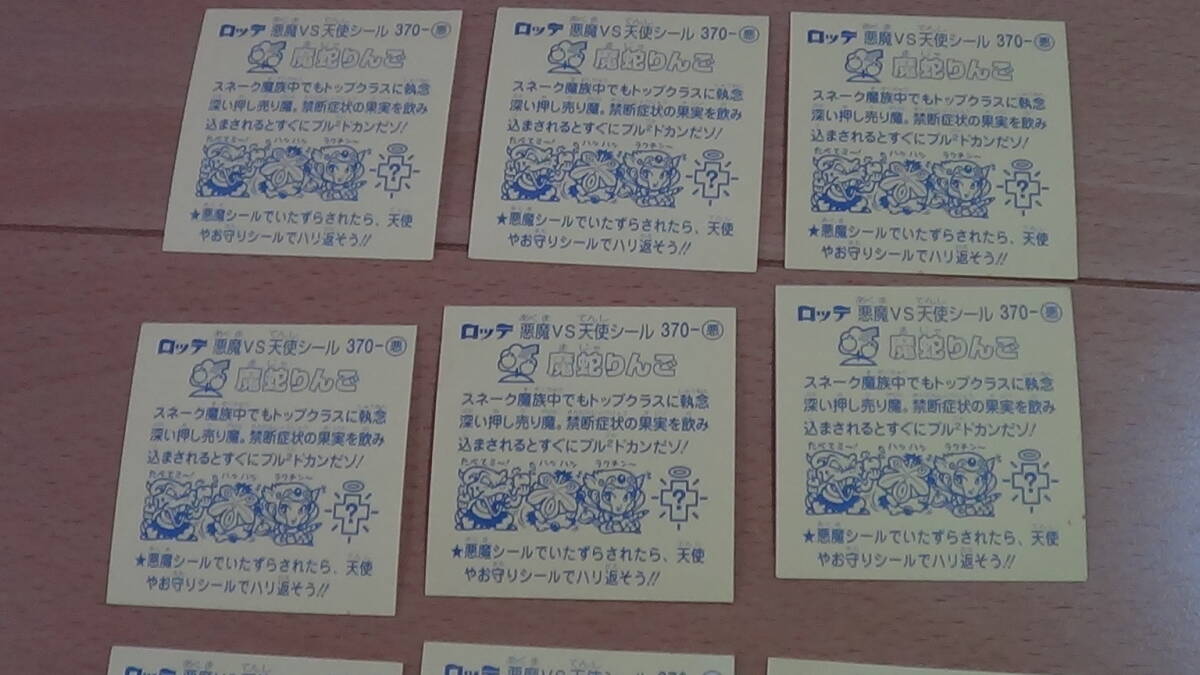 ロッテ 悪魔VS天使シール 370-悪
魔蛇りんご
スネーク魔族中でもトップクラスに執念
深い押し売り魔。禁断症状の果実を飲み
込まされるとすぐにブル²ドカンだソ!
たべてミー! ハァハァ ラクチン〜
?
★悪魔シールでいたずらされたら、天使
やお守りシールでハリ返そう!!
ロッテ 悪魔VS天使シール 370-悪
魔蛇りんご
スネーク魔族中でもトップクラスに執念
深い押し売り魔。禁断症状の果実を飲み
込まされるとすぐにブル²ドカンだソ!
たべてミー! ハァハァ ラクチン〜
?
★悪魔シールでいたずらされたら、天使
やお守りシールでハリ返そう!!
ロッテ 悪魔VS天使シール 370-悪
魔蛇りんご
スネーク魔族中でもトップクラスに執念
深い押し売り魔。禁断症状の果実を飲み
込まされるとすぐにブル²ドカンだソ!
たべてミー! ハァハァ ラクチン〜
?
★悪魔シールでいたずらされたら、天使
やお守りシールでハリ返そう!!
ロッテ 悪魔VS天使シール 370-悪
魔蛇りんご
スネーク魔族中でもトップクラスに執念
深い押し売り魔。禁断症状の果実を飲み
込まされるとすぐにブル²ドカンだソ!
たべてミー! ハァハァ ラクチン〜
?
★悪魔シールでいたずらされたら、天使
やお守りシールでハリ返そう!!
ロッテ 悪魔VS天使シール 370-悪
魔蛇りんご
スネーク魔族中でもトップクラスに執念
深い押し売り魔。禁断症状の果実を飲み
込まされるとすぐにブル²ドカンだソ!
たべてミー! ハァハァ ラクチン〜
?
★悪魔シールでいたずらされたら、天使
やお守りシールでハリ返そう!!
ロッテ 悪魔VS天使シール 370-悪
魔蛇りんご
スネーク魔族中でもトップクラスに執念
深い押し売り魔。禁断症状の果実を飲み
込まされるとすぐにブル²ドカンだソ!
たべてミー! ハァハァ ラクチン〜
?
★悪魔シールでいたずらされたら、天使
やお守りシールでハリ返そう!!
ロッテ 悪魔VS天使シール
ロッテ 悪魔VS天使シール 370-